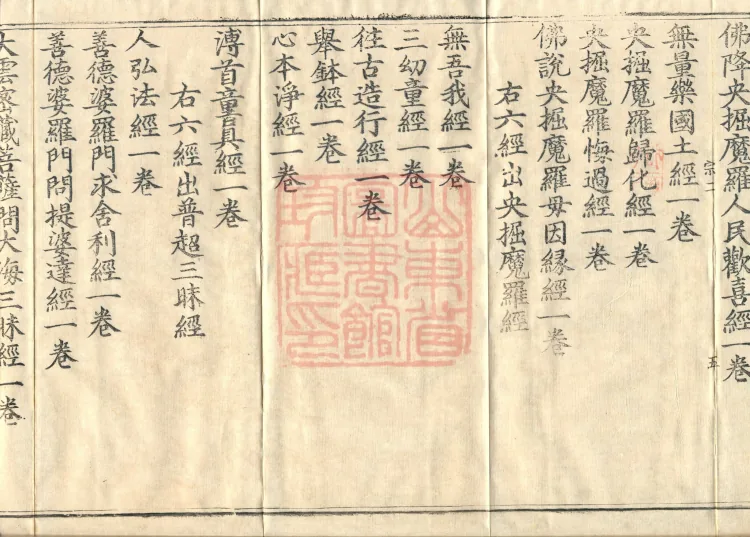 佛降央掘魔羅人民歡喜經一卷
宗二
五
無量樂國土經一卷
央掘魔羅歸化經一卷
央掘魔羅悔過經一卷
佛說央掘魔羅母因緣經一卷
右六經出央掘魔羅經
無吾我經一卷
三幼童經一卷
往古造行經一卷
舉鉢經一卷
心本淨經一卷
溥首童真經一卷
右六經出普超三昧經
人弘法經一卷
善德婆羅門求舍利經一卷
善德婆羅門問提婆達經一卷
大雲密藏菩薩問大海三昧經一卷
山東省
圖書館
收藏印